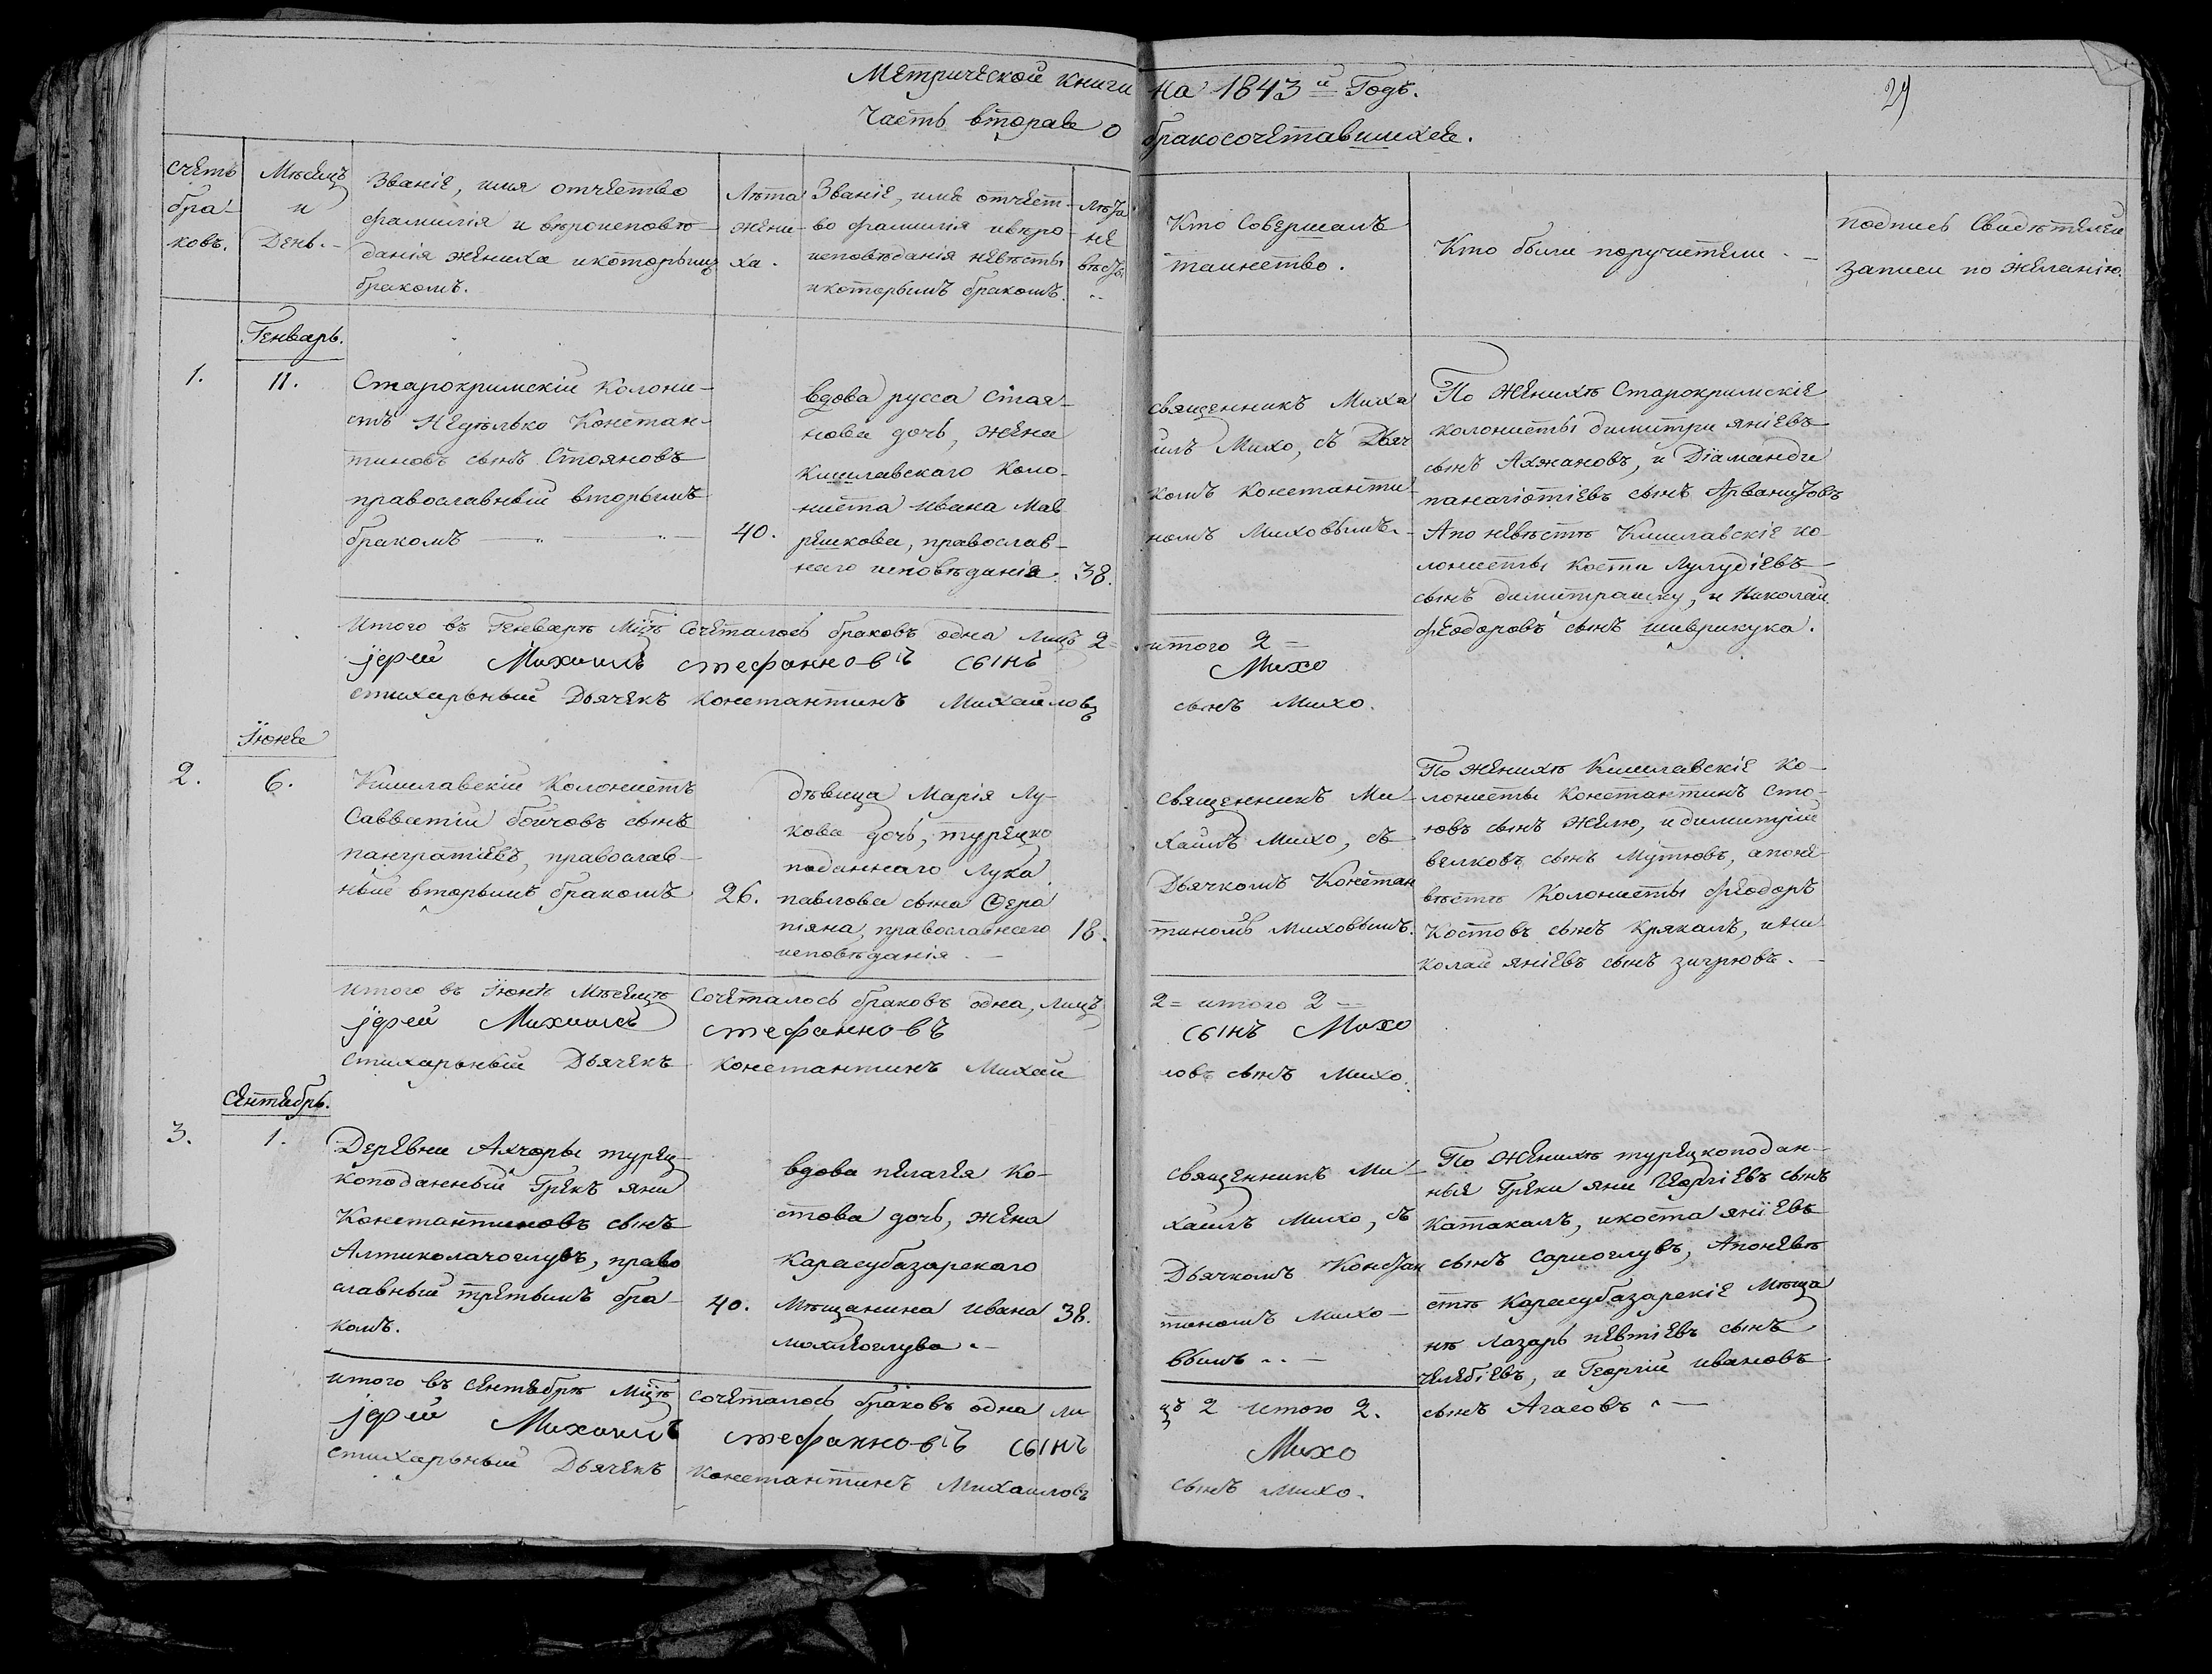 Метрической книги на 1843й Годъ.
29
Часть вторая о бракосочетавшихся.
Счетъ
бра-
ковъ.
Мѣсяцъ
и
День.
Званіе, имя отчество
фамилія и вѣроисповѣ-
данія жениха икоторымъ
бракомъ.
Лѣта
жени-
ха.
Званіе, имя отчест-
во фамилія ивѣро-
исповѣданія невѣсты
икоторымъ бракомъ.
Лѣта
не
вѣсты
Кто Совершалъ
таинство.
Кто были поручители.
подпись Свидѣтелей
записи по желанію.
Генварь.
1.
11.
Старокримскій Колони-
стъ Недѣлько Констан-
тиновъ сынъ Стояновъ
православный вторымъ
бракомъ
40.
вдова русса Стоя-
нова дочь, жена
Кишлавскаго Коло-
ниста ивана Мав
решкова, православ-
наго исповѣданія.
38.
священникъ Миха
илъ Михо, съ Дьяч
комъ Константи-
номъ Миховымъ.
По женихѣ Старокримскіе
колонисты димитри яніевъ
сынъ Ахжановъ, и Діаманди
панагіотіевъ сынъ Арванитовъ
Апо невѣстѣ Кишлавскіе ко-
лонисты Кости Лулудіевъ
сынъ димитрашку, и Николай
феодоровъ сынъ шиврикука.
итого въ Генварѣ Мцѣ Сочеталось браковъ одна лицъ 2= итого 2=
іерей Михаилъ стефановъ сынъ Михо
стихарьный Дьячекъ Константинъ Михаиловъ сынъ Михо.
Іюня
2.
6.
Кишлавскій Колонистъ
Савватій бойчовъ сынъ
пангратіевъ, православ-
ный вторымъ бракомъ
26.
дѣвица Марія Лу-
кова дочь, турецко
поданнаго Лука
павлова сына Сера
піяна, православнаго
исповѣданія.
18.
священникъ Ми-
хаилъ Михо, съ
Дьячкомъ Констан
тиномъ Миховымъ.
По женихѣ Кишлавскіе Ко-
лонисты Константинъ Сто-
ювъ сынъ Желю, и димитрій
велковъ сынъ Мутювъ, апоне
вѣстѣ Колонисты феодоръ
Костовъ сынъ Крякалъ, ини
колай яніевъ сынъ зигрювъ.
итого въ Іюнѣ Мѣсяцѣ Сочеталось браковъ одна, лицъ 2= итого 2=
іерей Михаилъ стефановъ сынъ Михо
стихарьный Дьячекъ Константинъ Михаи ловъ сынъ Михо.
Сентябрь.
3.
1.
Деревни Ахчоры турец-
коподанный Грекъ яни
Константиновъ сынъ
Алтиколачоглувъ, право
славный третьимъ бра-
комъ.
40.
вдова пелагея Ко-
стова дочь, жена
Карасубазарскаго
Мѣщанина ивана
михнеоглува.
38.
священникъ Ми-
хаилъ Михо, съ
Дьячкомъ Констан
тиномъ Михо-
вымъ.
По женихѣ турецкоподан-
ные Греки яни Георгіевъ сынъ
Катакалъ, икоста яніевъ
сынъ Сариоглувъ, Апоневѣ
стѣ Карасубазарскіе Мѣща
нѣ лазарь певтіевъ сынъ
челебіевъ, и Георгій ивановъ
сынъ Агасовъ.
итого въ Сентябрѣ Мцѣ сочеталось браковъ одна ли цъ 2 итого 2.
іерей Михаилъ стефановъ сынъ Михо
стихарьный Дьячекъ Константинъ Михаиловъ сынъ Михо.